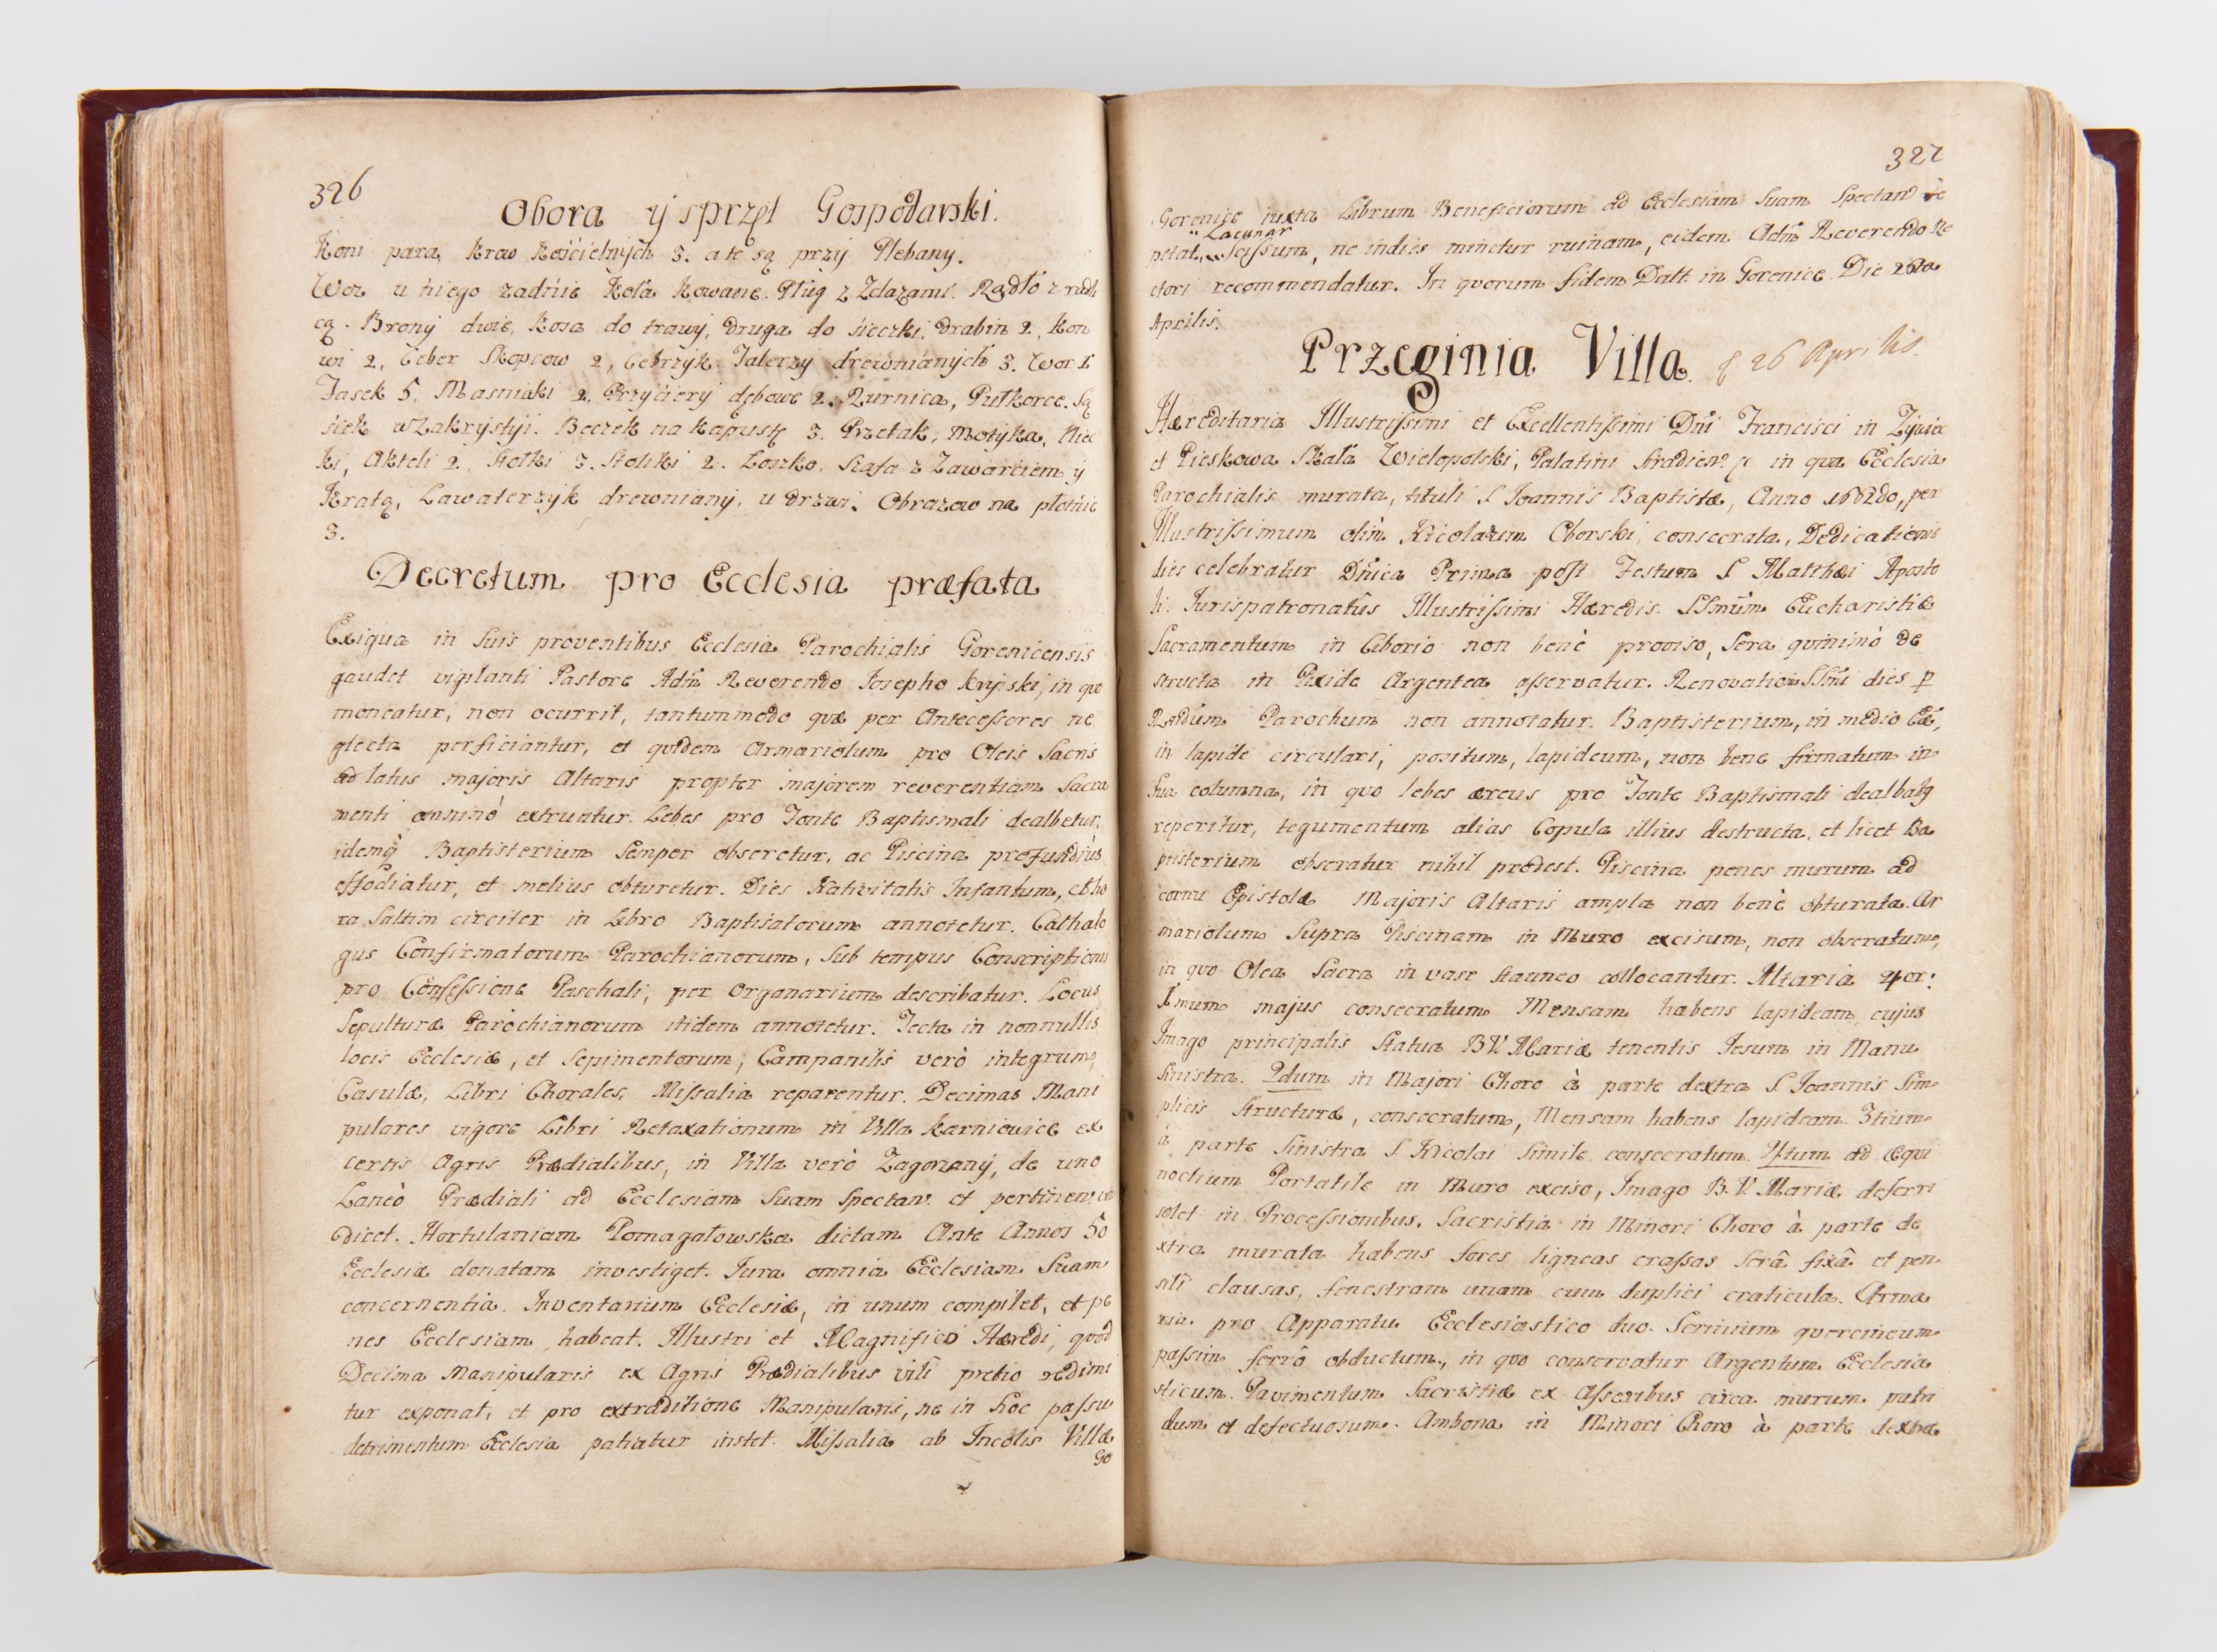 326
Obora ÿ sprzęt Gospodarski.
Koni para, Krow Kościelnych 3. a te są przÿ Plebanÿ.
Woz u niego zadnie Koła Kowane. Pług z Zelazami. Radło z radli
cą. Bronÿ dwie, Kosa do trawÿ, druga do sieczki. Drabin 2. Kon
wi 2, Ceber Skopcow 2, Cebrzÿk. Talerzy drewnianÿch 3. Wor 1
Fasek 5. Masniaki 2. Przÿcierÿ dębowe 2. Żurnica, Pułkorce. Są
siek w Zakrÿstÿi. Beczek na kapustę 3. Przetak, Motÿka, Niec
ki, Akteli 2. Stołki 3. Stoliki 2. Łoszko. Szafa z Zawarciem ÿ
Kratą, Lawaterzÿk drewnianÿ, u drzwi. Obrazow na płotnie
3.
Decretum pro Ecclesia præfata
Exigua in suis proventibus Ecclesia Parochialis Gorenicensis
gaudet vigilanti Pastore Adm̃ Reverendo Josepho in quo
moneatur, non ocurrit, tantummodo quæ per Antecessores ne
glecta perficiantur, et quidem Armariolum pro Oleis Sacris
ad latus majoris Altaris propter majorem reverentiam Sacra
menti omninò extruatur. Lebes pro Fonte Baptismali dealbetur,
idemq̃ Baptisterium semper obseretur, ac Piscina profundius
effodiatur, et melius obturetur. Dies Nativitatis Infantum, et ho
ra saltim circiter in Libro Baptisatorum annotetur. Cathalo
gus Confirmatorum Parochianorum, sub tempus Conscriptionis
pro Confessione Paschali, per Organarium describatur. Locus
Sepulturæ Parochianorum itidem annotetur. Tecta in nonnullis
locis Ecclesiæ, et sepimentorum, Campanilis verò integrum,
Casulæ, Libri Chorales, Missalia reparentur. Decimas Mani
pulares vigore Libri Retaxationum in Villa Karniowice ex
certis Agris Prædialibus, in Villa verò Zagorzanÿ, de uno
Laneò Prædiali ad Ecclesiam suam spectan. et pertinen. vin
dicet. Hortulaniam Pomagałowska dictam Ante Annos 50
Ecclesiæ donatam investiget. Jura omnia Ecclesiam suam
concernentia. Inventarium Ecclesiæ, in unum compilet, et pe
nes Ecclesiam habeat. Illustri et Magnifico Hæredi, quod
Decima Manipularis ex Agris Prædialibus vili pretio redimi
tur exponat, et pro extraditione Manipularis, ne in hoc passu
detrimentum Ecclesia patiatur instet. Missalia ab Incolis Villæ
Go
327
Gorenice iuxta Librum Beneficiorum ad Ecclesiam suam spectan re
Lacunar
petat, scissum, ne indies minetur ruinam, eidem Adm̃ Reverendo Re
ctori recommendatur. In quorum fidem Datt. in Gorenice Die
Aprilis.
Przeginia Villa. 26 Aprilis.
Hæreditaria Illustrissimi et Excellentissimi Dñi Francisci in Zÿwiec
et Pieskowa Skała Wielopolski, Palatini Siradien. in qua Ecclesia
Parochialis murata, tituli S Joannis Baptistæ, Anno 1682do, per
Illustrissimum olim Nicolaum Oborski, consecrata, Dedicationis
dies celebratur Dñica Prima post Festum S Matthæi Aposto
li. Jurispatronatûs Illustrissimi Hæredis. SSmũm Eucharistiæ
Sacramentum in Ciborio non benè proviso, Sera quinimò de
structa in Pixide Argentea asservatur. Renovation SSmi dies p
Rndum Parochum non annotatur. Baptisterium, in medio Eæ,
in lapide circulari, positum, lapideum, non bene firmatum in
sua columna, in quo lebes æreus pro Fonte Baptismali dealbatq
reperitur, tegumentum alias Copula illius destructa, et licet Ba
ptisterium obseratur nihil prodest. Piscina penes murum ad
cornu Epistolæ Majoris Altaris ampla non benè obturata. Ar
mariolum supra Piscinam in Muro excisum, non obseratum,
in quo Olea Sacra in vase stanneo collocantur. Altaria 4or:
Imum majus consecratum Mensam habens lapideam, cujus
Imago principalis Statua BV Mariæ tenentis Jesum in Manu
sinistra. 2dum in Majori Choro à parte dextra S Joannis Sim
plicis structuræ, consecratum, Mensam habens lapideam. 3tium
à parte sinistra S Nicolai simile consecratum. 4tum ad Æqui
noctium Portatile in Muro exciso, Imago B.V. Mariæ deferri
solet in Processionibus. Sacristia in Minori Choro à parte de
xtra murata habens fores ligneas crassas serâ fixâ et pen
sili clausas, fenestram unam cum duplici craticula. Arma
ria pro Apparatu Ecclesiastico duo. Scrinium quercineum
passim ferrô obductum, in quo conservatur Argentum Ecclesia
sticum. Pavimentum Sacristiæ ex Asseribus circa murum putri
dum et defectuosum. Ambona in Minori Choro à parte dextra